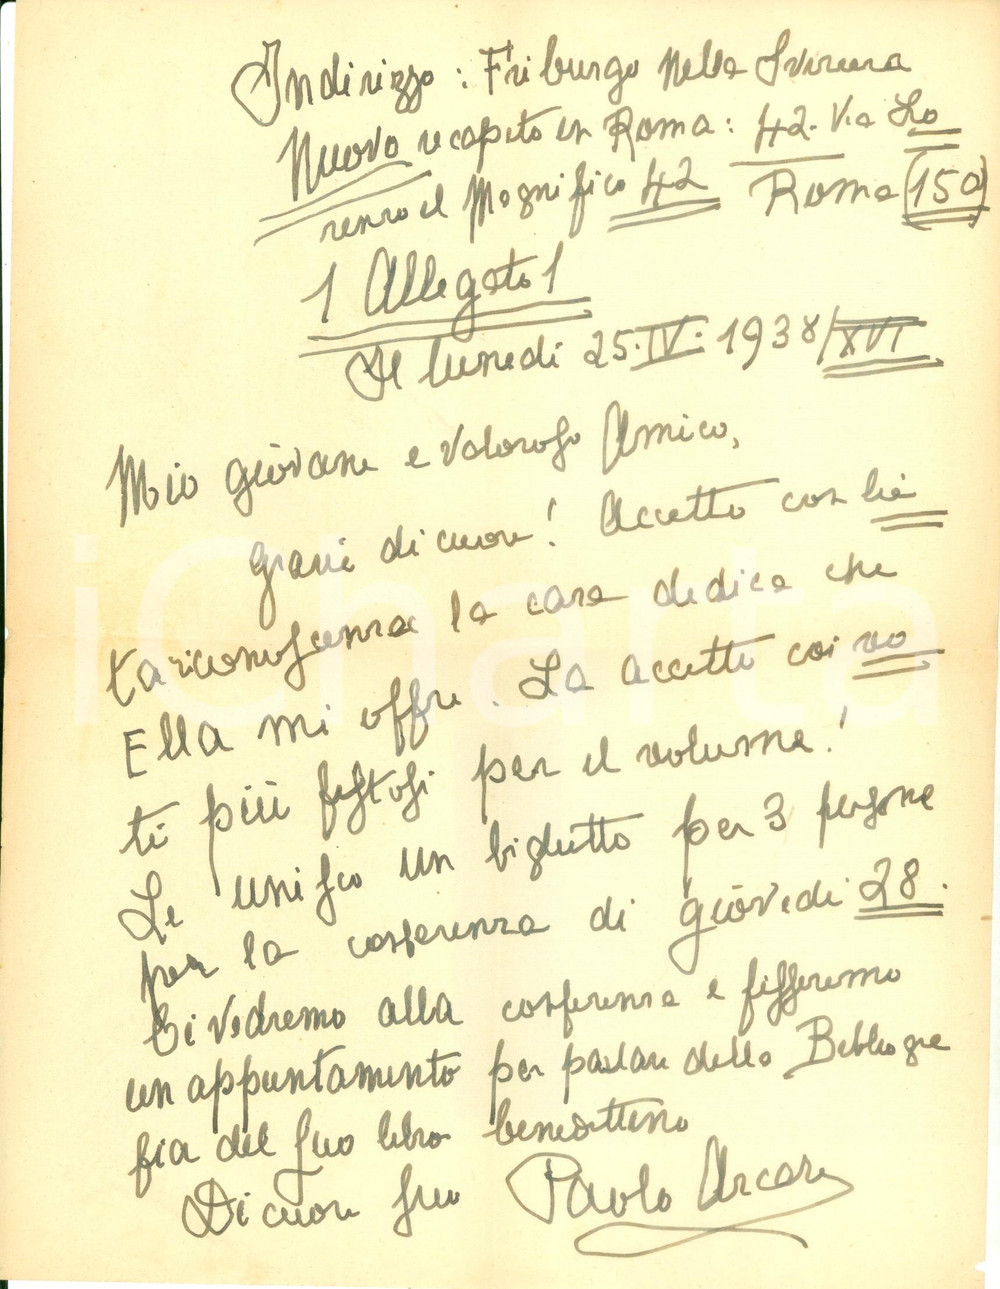 Indirizzo: Friburgo nella Svizzera
Nuovo recapito in Roma: 42. Via Lo
renzo il Magnifico 42 Roma (150)
1 Allegato 1
Il lunedì 25.IV.1938/XVI
Mio giovane e valoroso Amico,
grazie di cuore! Accetto con lie
ta riconoscenza la cara dedica che
Ella mi offre. La accetto coi vo
ti più festosi per il volume!
Le unisco un biglietto per 3 persone
per la conferenza di giovedì 28.
Ci vedremo alla conferenza e fisseremo
un appuntamento per parlare della Bibliogra
fia del suo libro benedettino
Di cuore suo Paolo Arcari
iCharta